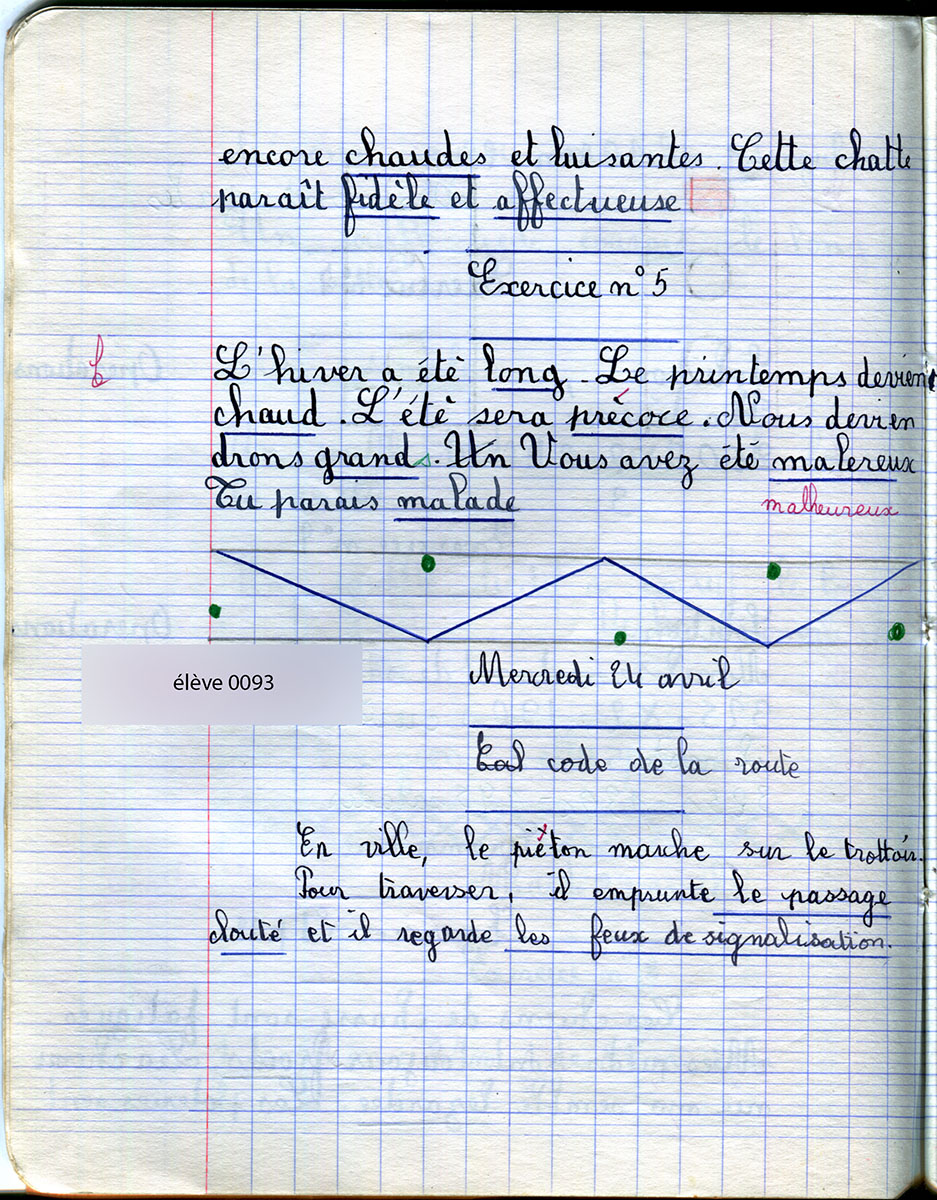 encore chaudes et luisantes. Cette chatte
paraît fidèle et affectueuse
Exercice n° 5
L'hiver a été long. Le printemps devient
chaud. L'été sera précoce. Nous devien
drons grands. Un Vous avez été malereux
malheureux
Tu parais malade
Mercredi 24 avril
élève 0093
code de la route
En ville, le piéton marche sur le trottoir.
Pour traverser, il emprunte le passage
clouté et il regarde les feux de signalisation.